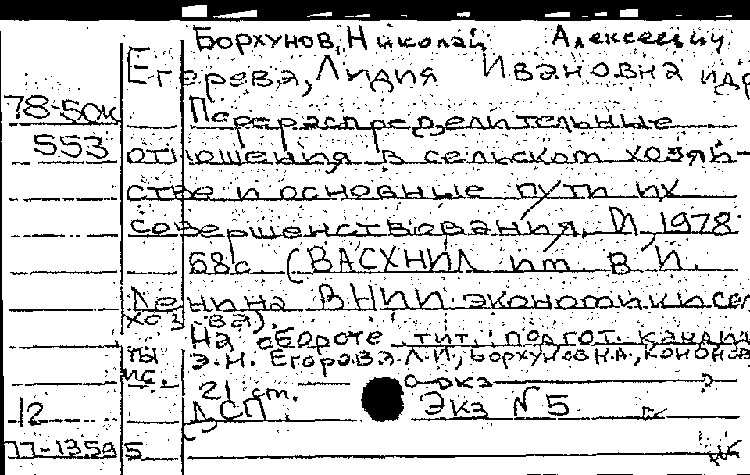 Борхунов, Николай Алексеевич
Егорева, Лидия Ивановна и др
78-50к
Перераспределительные
553
отношения в сельском хозяй-
стве и основные пути их
совершенствования. М 1978
68с (ВАСХНИЛ им В И.
Ленина ВНИИ экономики сел
хоз-ва).
На обороте тит. подгот. канди
э.н. Егорова Л.И, Борхунов Н.А, Кононов
21 cm.
ДСП
Экз №5
12
77-13595